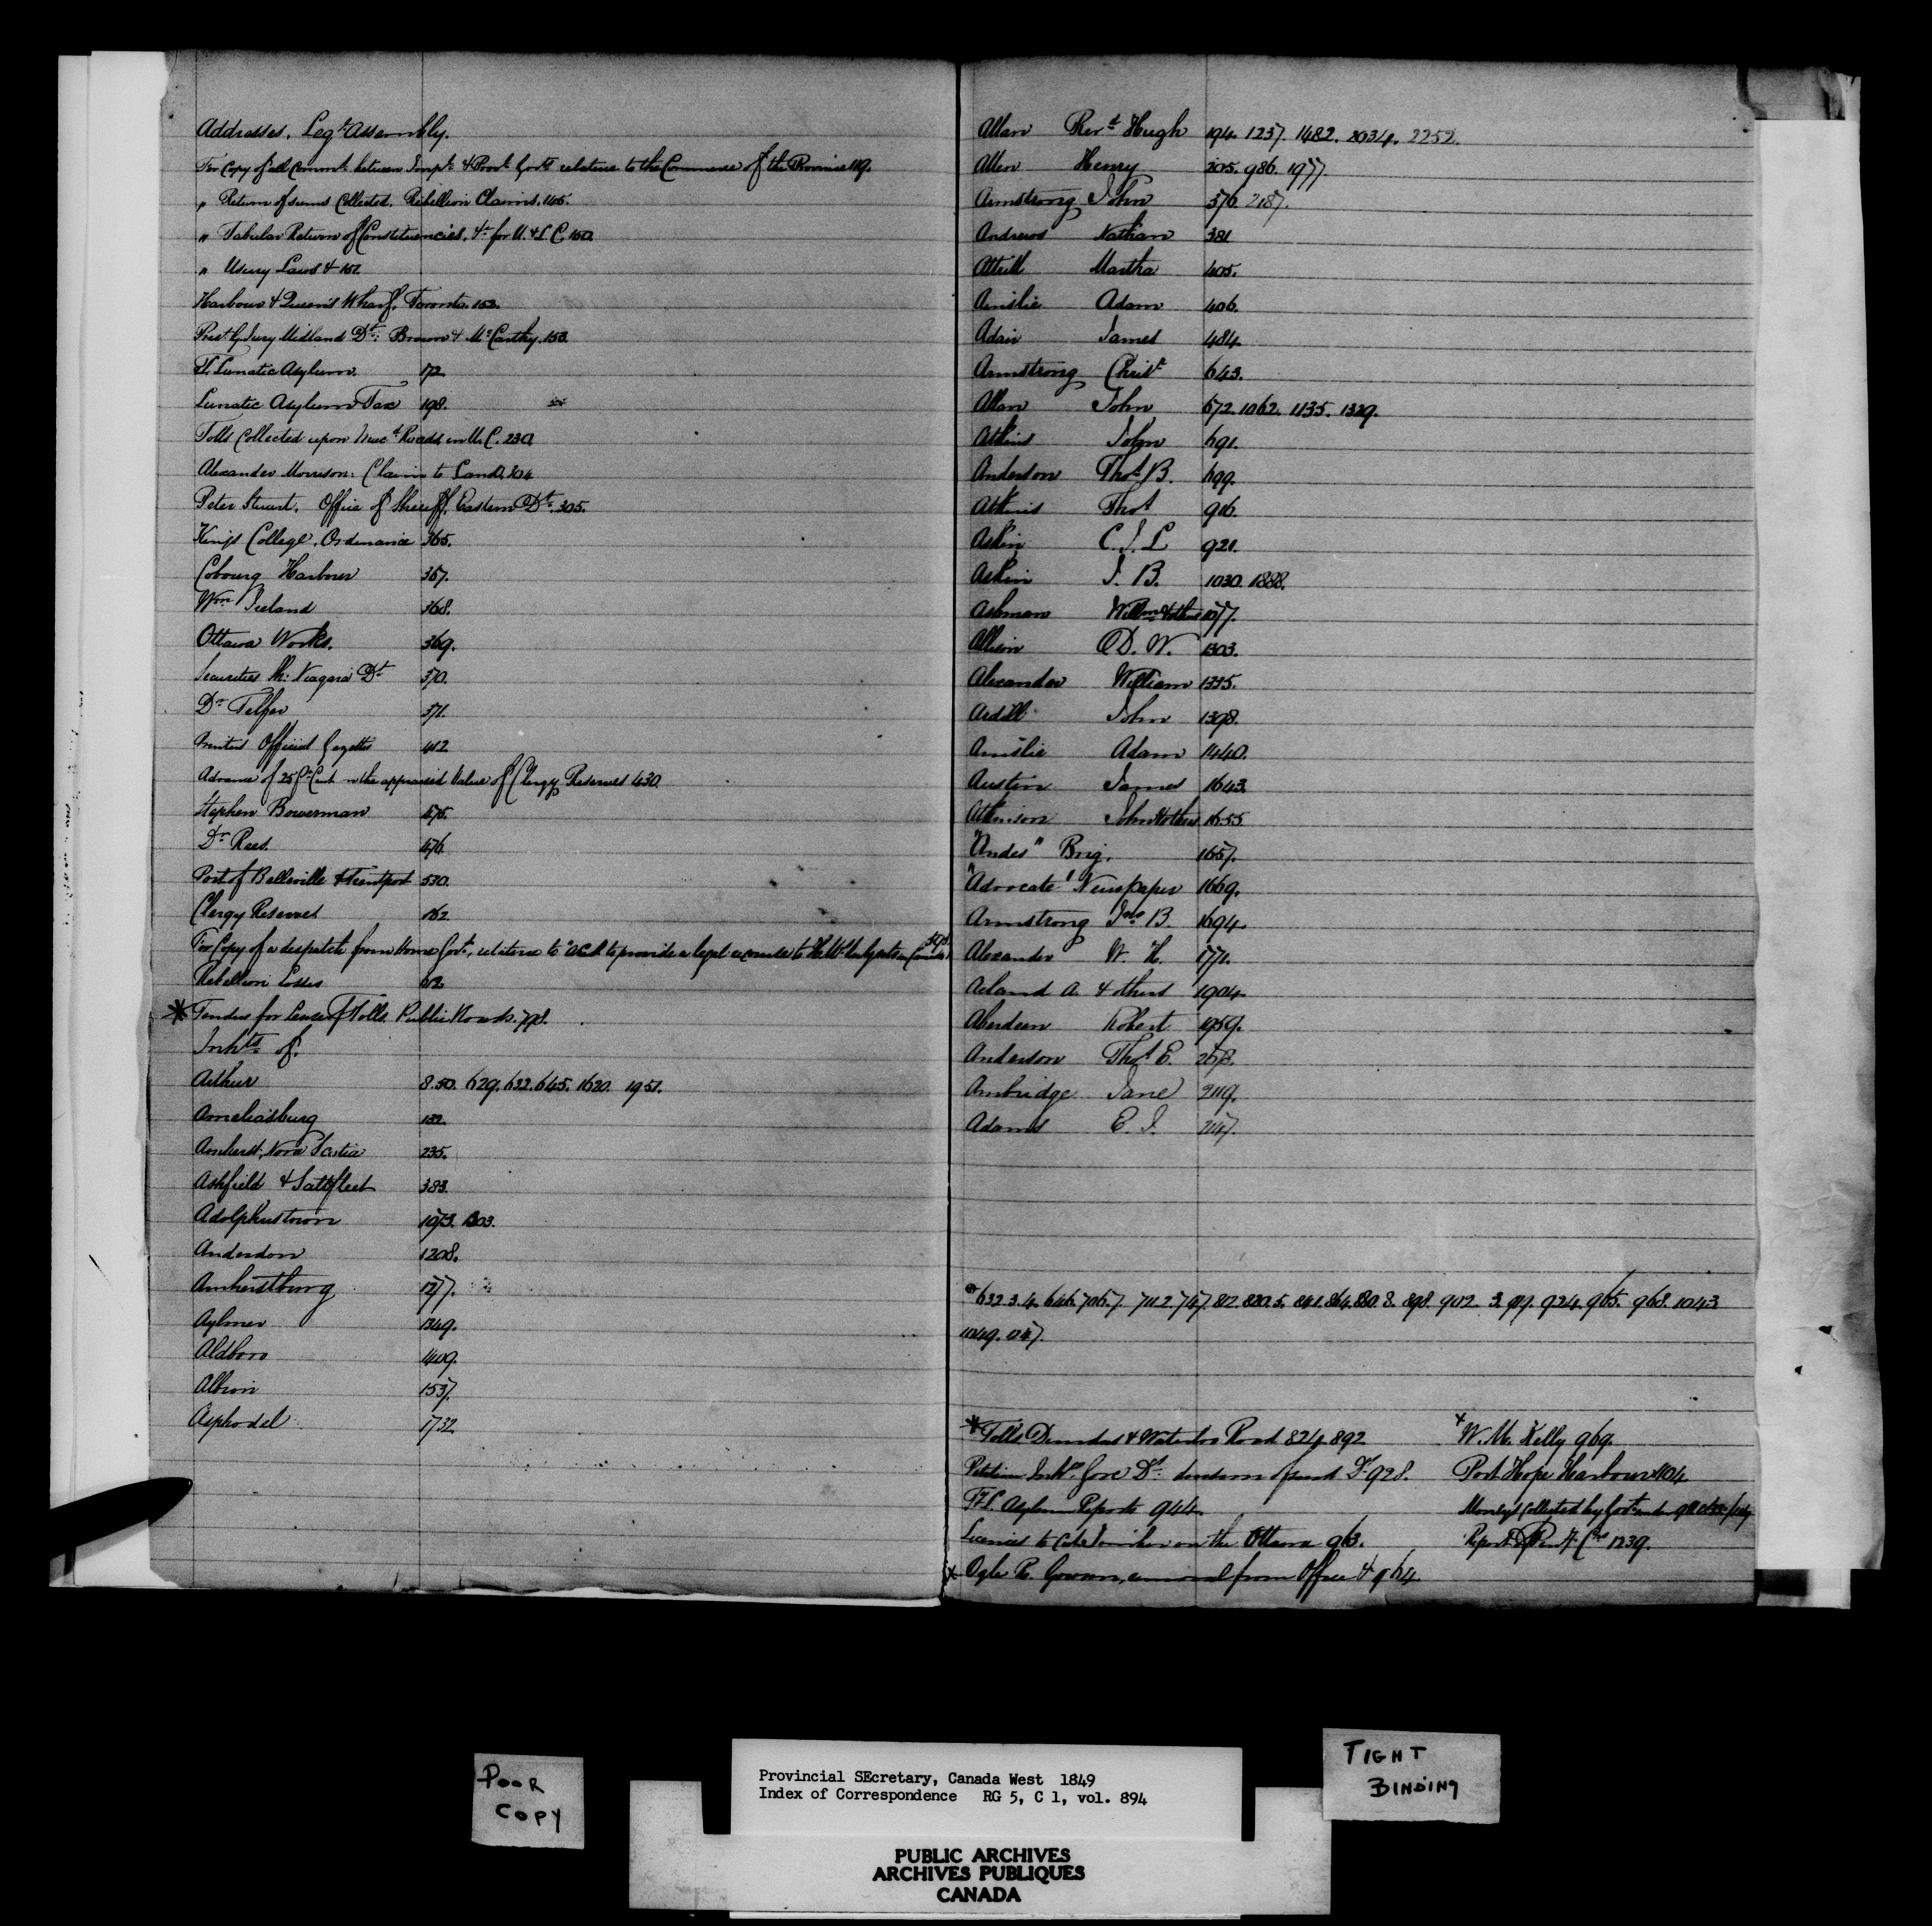 Addresses. Leg^e Assembly.
For Copy of all Commn^s between Imp^l & Prov^l Gov^ts relative to the Commerce of the Province 119.
" Return of sums Collected. Rebellion Claims. 145.
" Tabular Return of Constituencies, &^c for U. & L. C. 150.
" Usury Laws & 151.
Harbour & Queen's Wharf, Toronto. 152.
G. Jury Midland D^t: Brown & M^cCarthy. 153.
T. Lunatic Asylum. 172.
Lunatic Asylum Tax 198.
Tolls Collected upon Roads in U. C. 230.
Alexander Morrison: Claim to Land. 304
Peter Stuart. Office of Sheriff, Eastern D^t. 305.
King's College. Ordinance 365.
Cobourg Harbour 367.
W^m Ireland 368.
Ottawa Works. 369.
Securities Sh: Niagara D^t 370.
D^r Telfer 371.
Printed Official Gazettes 412
Advance of 25 P^r Cent on the appraised Value of Clergy Reserves 430.
Stephen Bowerman 475.
D^r Rees. 476.
Port of Belleville & Trentport 530.
Clergy Reserves 162
For Copy of a despatch from Home Gov^t, relative to Act to provide a legal
Rebellion Losses 612.
* Tenders for Lease of Tolls. Public Roads. 798.
Inh^ts of.
Arthur 8. 50. 629. 632. 645. 1620. 1951.
Ameliasburg 132.
Amherst, Nova Scotia 235.
Ashfield & Saltfleet 383.
Adolphustown 1073. 1303.
Anderdon 1208.
Amherstburg 1277.
Aylmer 1349.
Aldboro 1409.
Albion 1537.
Asphodel 1732
Allan Rev^d Hugh 194. 1237. 1482. 2034. 2252.
Allen Henry 205. 986. 1977
Armstrong John 376. 2187.
Andrews Nathan 381
Attrill Martha 405.
Ainslie Adam 406.
Adair James 484.
Armstrong Chris^r 643.
Allan John 672. 1062. 1135. 1329.
Atkins John 691.
Anderson Tho^s B. 699.
Atkins Tho^s 916.
Askin C. J. L 921.
Askin J. B. 1030. 1888.
Ashman William & others 1077.
Allison D. W. 1303.
Alexander William 1335.
Ardill John 1398.
Ainslie Adam 1440.
Austin James 1643.
Atkinson John & others 1655
"Andes" Brig. 1657.
"Advocate" Newspaper 1669.
Armstrong Ja^s B. 1694
Alexander W. H. 1771.
Acland A. & others 1904.
Aberdeen Robert 1959.
Anderson Tho^s E. 2078.
Ambridge Jane 2119.
Adams E. J. 2147.
632. 3. 4. 646. 706. 7. 711. 2. 747. 812. 820. 5. 841. 864. 880. 8. 898. 902. 3. 917. 924. 965. 968. 1043
1049. 1047.
* Tolls Dundas & Waterloo Road 824. 892
Petition Inh^ts Gore D^t. 928.
T. L. Asylum Reports 944.
Licences to Cut Timber on the Ottawa 963.
x Ogle R. Gowan, removal from Office & 964
x W. M. Kelly 969.
Port Hope Harbour 1104
Moneys Collected by Gov^t under
Report Pen^y C^rs 1239.
POOR
COPY
TIGHT
BINDING
Provincial SEcretary, Canada West 1849
Index of Correspondence RG 5, C 1, vol. 894
PUBLIC ARCHIVES
ARCHIVES PUBLIQUES
CANADA